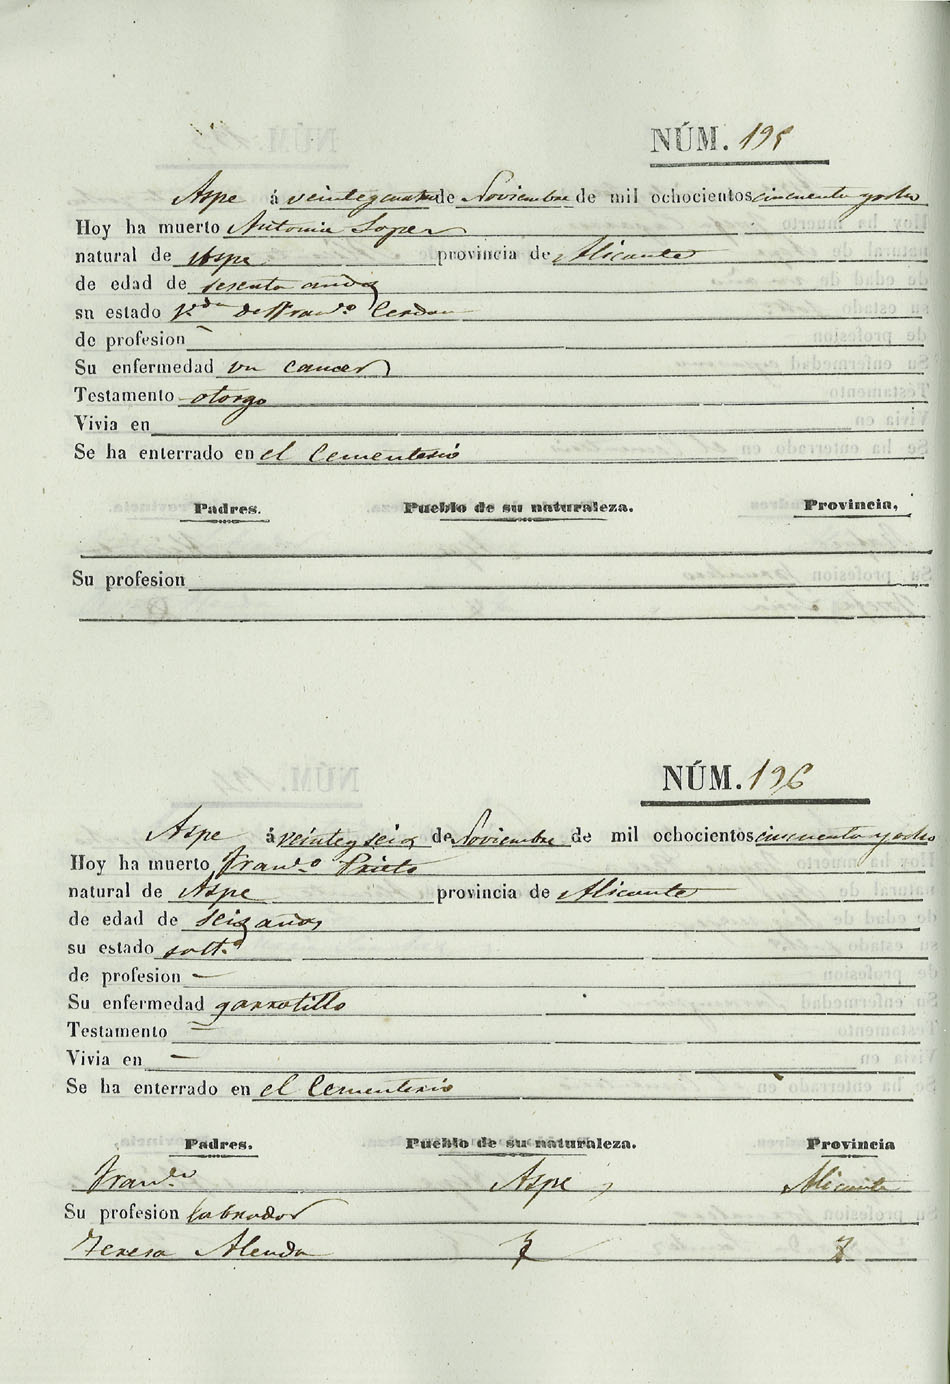 NÚM. 195
Aspe á veinteycuatro de Noviembre de mil ochocientos cincuenta yocho
Hoy ha muerto Antonia Lopez
natural de Aspe provincia de Alicante
de edad de sesenta años
su estado V.da de Fran.co Cerdan
de profesion –
Su enfermedad un cancer
Testamento otorgo
Vivia en
Se ha enterrado en el Cementerio
Padres. Pueblo de su naturaleza. Provincia,
Su profesion
NÚM. 196
Aspe á veinteyseis de Noviembre de mil ochocientos cincuenta yocho
Hoy ha muerto Fran.co Prieto
natural de Aspe provincia de Alicante
de edad de seis años
su estado solt.o
de profesion –
Su enfermedad garrotillo
Testamento –
Vivia en –
Se ha enterrado en el Cementerio
Padres. Pueblo de su naturaleza. Provincia
Fran.co Aspe Alicante
Su profesion labrador
Teresa Alenda